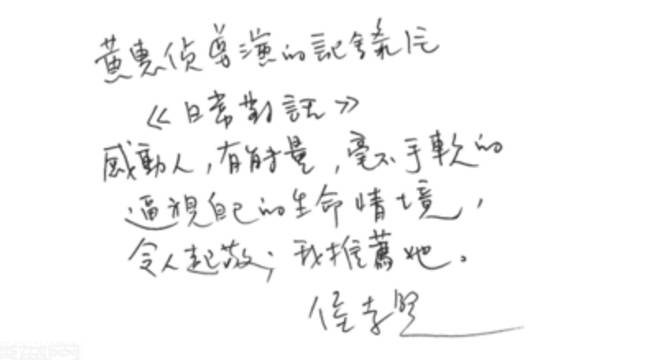 黃惠偵導演的記錄片
《日常對話》
感動人，有能量，毫不手軟的
逼視自己的生命情境，
令人起敬；我推薦她。
侯孝賢